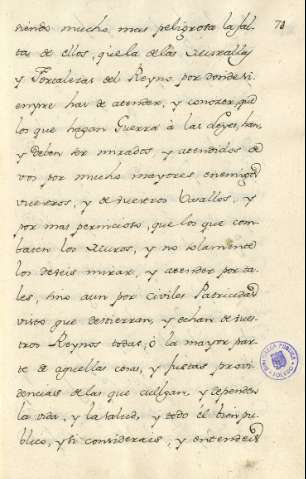 73
siendo mucho mas peligrosa la fal-
ta de ellos, que la de las Murallas
y Fortalezas del Reyno, por donde si-
empre has de atender, y conocer, que
los que hagan Guerra à las Leyes, han,
y deben ser mirados, y atendidos de
vos por mucho mayores enemigos
vuestros, y de vuestros Vasallos, y
por mas pernicioso, que los que com-
baten los Muros, y no solamente
los deveis mirar, y atender por ta-
les, sino aun por Civiles Patricidas
visto que destierran, y echan de vues-
tros Reynos todas, ò la mayor par-
te de aquellas cosas, y justas provi-
dencias de las que cuelgan, y dependen
la vida, y la salud, y todo el bien pu-
blico, y si considerais, y entendeis
BIBLIOTECA PUBLICA
TOLEDO